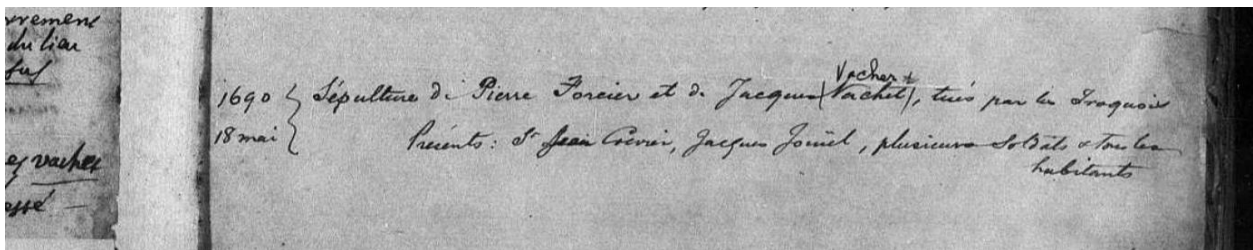 vrement
du lieu
Vacher +
1690 { Sépulture de Pierre Forcier et de Jacques (Vachet), tués par les Iroquois
18 mai Présents: Sr Jean Crevier, Jacques Joüiel, plusieurs soldats & tous les
habitants
vachet